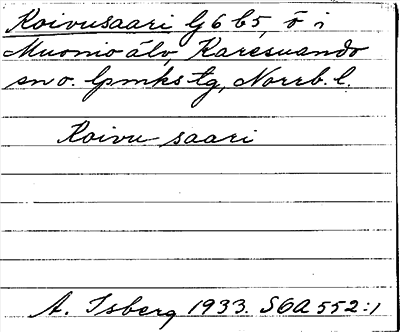 Koivusaari G6b5, ö i
Muonio älv, Karesuando
sn o. lpmks tg, Norrb. l.
Koivu saari
A. Isberg 1933. SOA 552:1